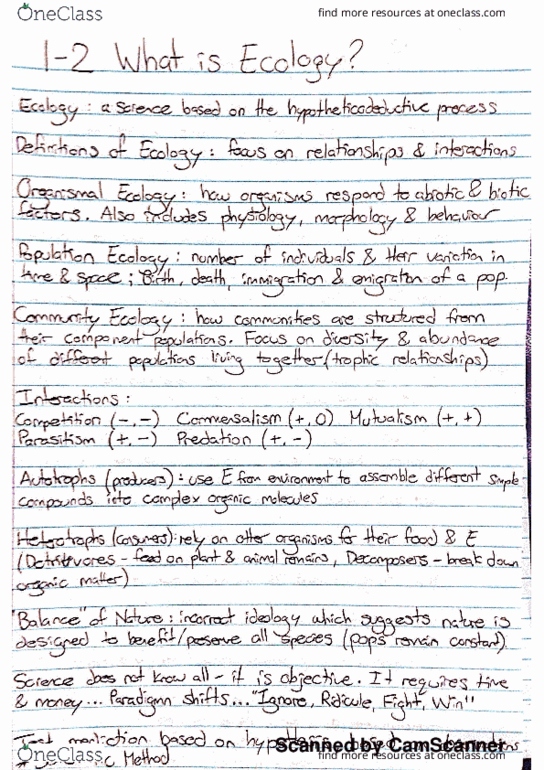 OneClass
find more resources at oneclass.com
1-2 What is Ecology?
Ecology : a science based on the hypotheticodeductive process
Definitions of Ecology : focus on relationships & interactions
Organismal Ecology : how organisms respond to abiotic & biotic
factors. Also includes physiology, morphology & behaviour
Population Ecology : number of individuals & their variation in
time & space ; Birth, death, immigration & emigration of a pop.
Community Ecology : how communities are structured from
their component populations. Focus on diversity & abundance
of different populations living together (trophic relationships)
Interactions :
Competition (-,-) Commensalism (+,0) Mutualism (+,+)
Parasitism (+,-) Predation (+,-)
Autotrophs (producers) : use E from environment to assemble different simple
compounds into complex organic molecules
Heterotrophs (consumers): rely on other organisms for their food & E
(Detritivores - feed on plant & animal remains, Decomposers - break down
organic matter)
"Balance" of Nature : incorrect ideology which suggests nature is
designed to benefit/preserve all species (pops remain constant)
Science does not know all - it is objective. It requires time
& money... Paradigm shifts... "Ignore, Ridicule, Fight, Win"
based on
Scanned by CamScanner
Method
OneClass
find more resources at oneclass.com